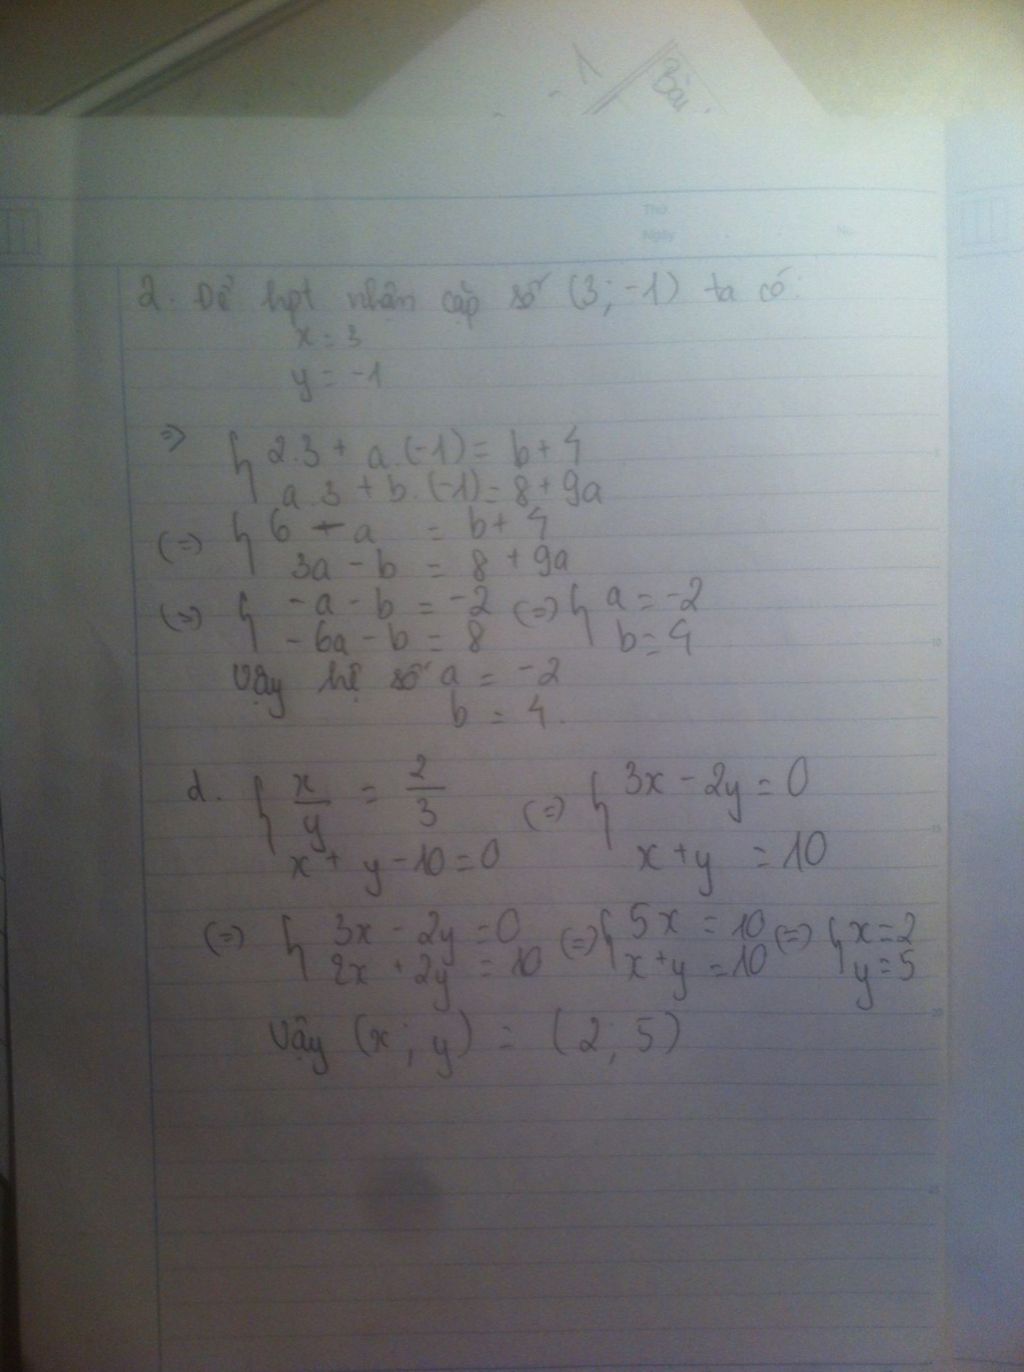 1
Bài
Thứ
Ngày
No.
2. Để hpt nhận cặp số (3; -1) ta có:
x = 3
y = -1
=> { 2.3 + a.(-1) = b + 4
a.3 + b.(-1) = 8 + 9a
(=) { 6 - a = b + 4
3a - b = 8 + 9a
(=) { -a - b = -2 (=) { a = -2
-6a - b = 8 b = 4
Vậy hệ số a = -2
b = 4.
d. { x/y = 2/3 (=) { 3x - 2y = 0
x + y - 10 = 0 x + y = 10
(=) { 3x - 2y = 0 (=) { 5x = 10 (=) { x = 2
2x + 2y = 10 x + y = 10 y = 5
Vậy (x; y) = (2; 5)